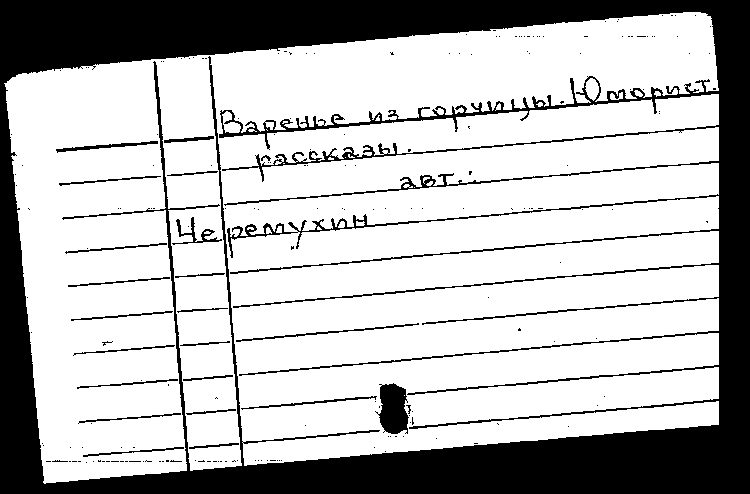 Варенье из горчицы. Юморист.
рассказы.
авт.:
Черемухин